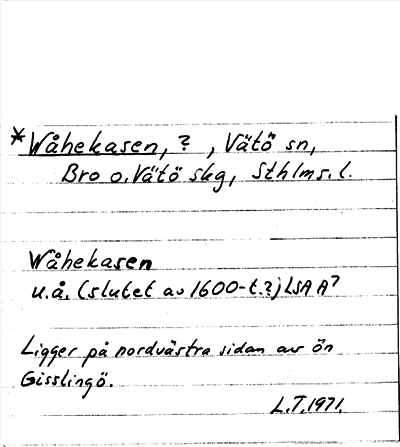 *Wåhekasen, ?, Vätö sn,
Bro o. Vätö skg, Sthlms. l.
Wåhekasen
u.å. (slutet av 1600-t.?) LSA A7
Ligger på nordvästra sidan av ön
Gisslingö.
L.T. 1971.